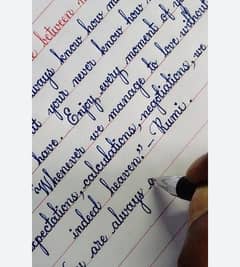 e between
ways know how m
at your never know how
have. Enjoy every moment of y
"Whenever we manage to love without
expectations, calculations, negotiations, we
indeed heaven." - Rumi.
are always